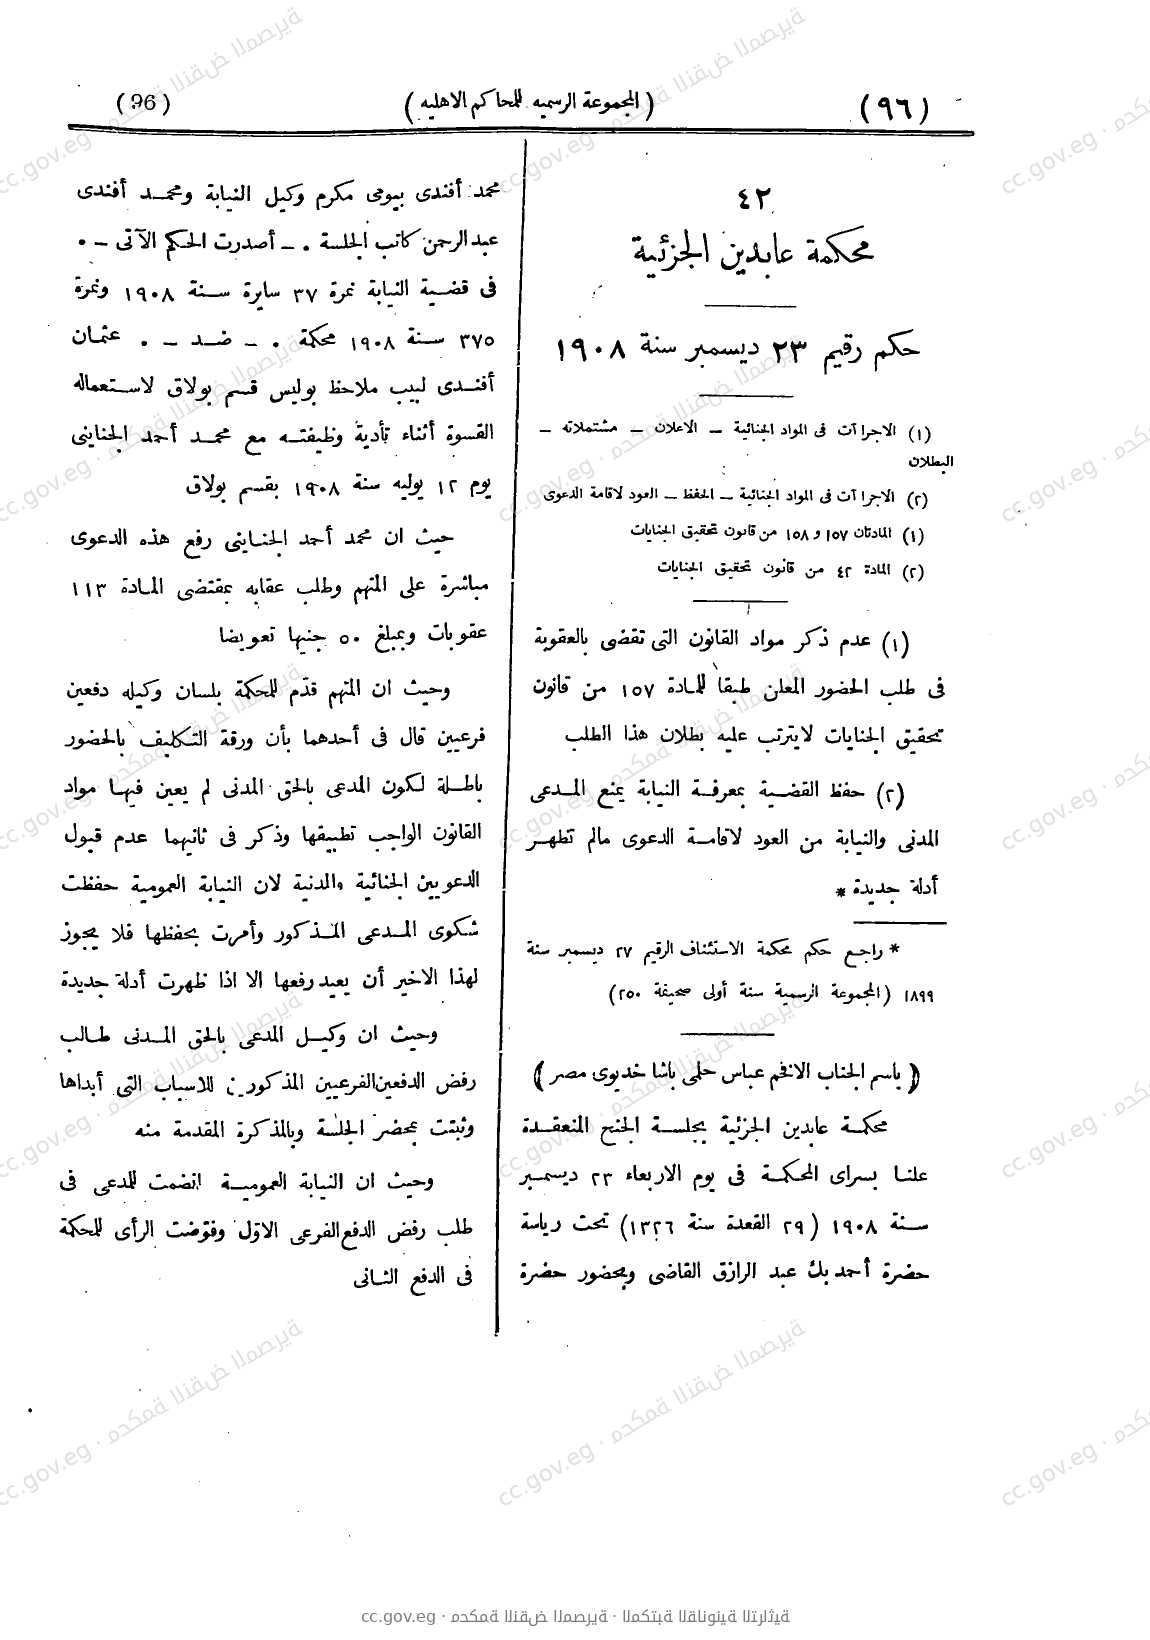 (٩٦)
(المجموعة الرسميه للمحاكم الاهليه)
(96)
٤٢
محكمة عابدين الجزئية
حكم رقيم ٢٣ ديسمبر سنة ١٩٠٨
(١) الاجراآت فى المواد الجنائية – الاعلان – مشتملاته –
البطلان
(٢) الاجراآت فى المواد الجنائية – الحفظ – العود لاقامة الدعوى
(١) المادتان ١٥٧ و ١٥٨ من قانون تحقيق الجنايات
(٢) المادة ٤٢ من قانون تحقيق الجنايات
(١) عدم ذكر مواد القانون التى تقضى بالعقوبة
فى طلب الحضور المعلن طبقا للمادة ١٥٧ من قانون
تحقيق الجنايات لايترتب عليه بطلان هذا الطلب
(٢) حفظ القضية بمعرفة النيابة يمنع المدعى
المدنى والنيابة من العود لاقامة الدعوى مالم تظهر
أدلة جديدة *
* راجع حكم محكمة الاستئناف الرقيم ٢٧ ديسمبر سنة
١٨٩٩ (المجموعة الرسمية سنة أولى صحيفة ٢٥٠)
(باسم الجناب الافخم عباس حلمى باشا خديوى مصر)
محكمة عابدين الجزئية بجلسة الجنح المنعقدة
علنا بسراى المحكمة فى يوم الاربعاء ٢٣ ديسمبر
سنة ١٩٠٨ (٢٩ القعدة سنة ١٣٢٦) تحت رياسة
حضرة أحمد بك عبد الرازق القاضى وبحضور حضرة
محمد أفندى بيومى مكرم وكيل النيابة ومحمد أفندى
عبدالرحمن كاتب الجلسة . – أصدرت الحكم الآتى – .
فى قضية النيابة نمرة ٣٧ سايرة سنة ١٩٠٨ ونمرة
٣٧٥ سنة ١٩٠٨ محكمة . – ضد – . عثمان
أفندى لبيب ملاحظ بوليس قسم بولاق لاستعماله
القسوة أثناء تأدية وظيفته مع محمد أحمد الجناينى
يوم ١٢ يوليه سنة ١٩٠٨ بقسم بولاق
حيث ان محمد أحمد الجناينى رفع هذه الدعوى
مباشرة على المتهم وطلب عقابه بمقتضى المادة ١١٣
عقوبات وبمبلغ ٥٠ جنيها تعويضا
وحيث ان المتهم قدّم للمحكمة بلسان وكيله دفعين
فرعيين قال فى أحدهما بأن ورقة التكليف بالحضور
باطلة لكون المدعى بالحق المدنى لم يعين فيها مواد
القانون الواجب تطبيقها وذكر فى ثانيهما عدم قبول
الدعويين الجنائية والمدنية لان النيابة العمومية حفظت
شكوى المدعى المذكور وأمرت بحفظها فلا يجوز
لهذا الاخير أن يعيد رفعها الا اذا ظهرت أدلة جديدة
وحيث ان وكيل المدعى بالحق المدنى طالب
رفض الدفعين الفرعيين المذكورين للاسباب التى أبداها
وثبتت بمحضر الجلسة وبالمذكرة المقدمة منه
وحيث ان النيابة العمومية انضمت للمدعى فى
طلب رفض الدفع الفرعى الاوّل وفوّضت الرأى للمحكمة
فى الدفع الثانى
cc.gov.eg · محكمة النقض المصرية · المكتبة القانونية التراثية